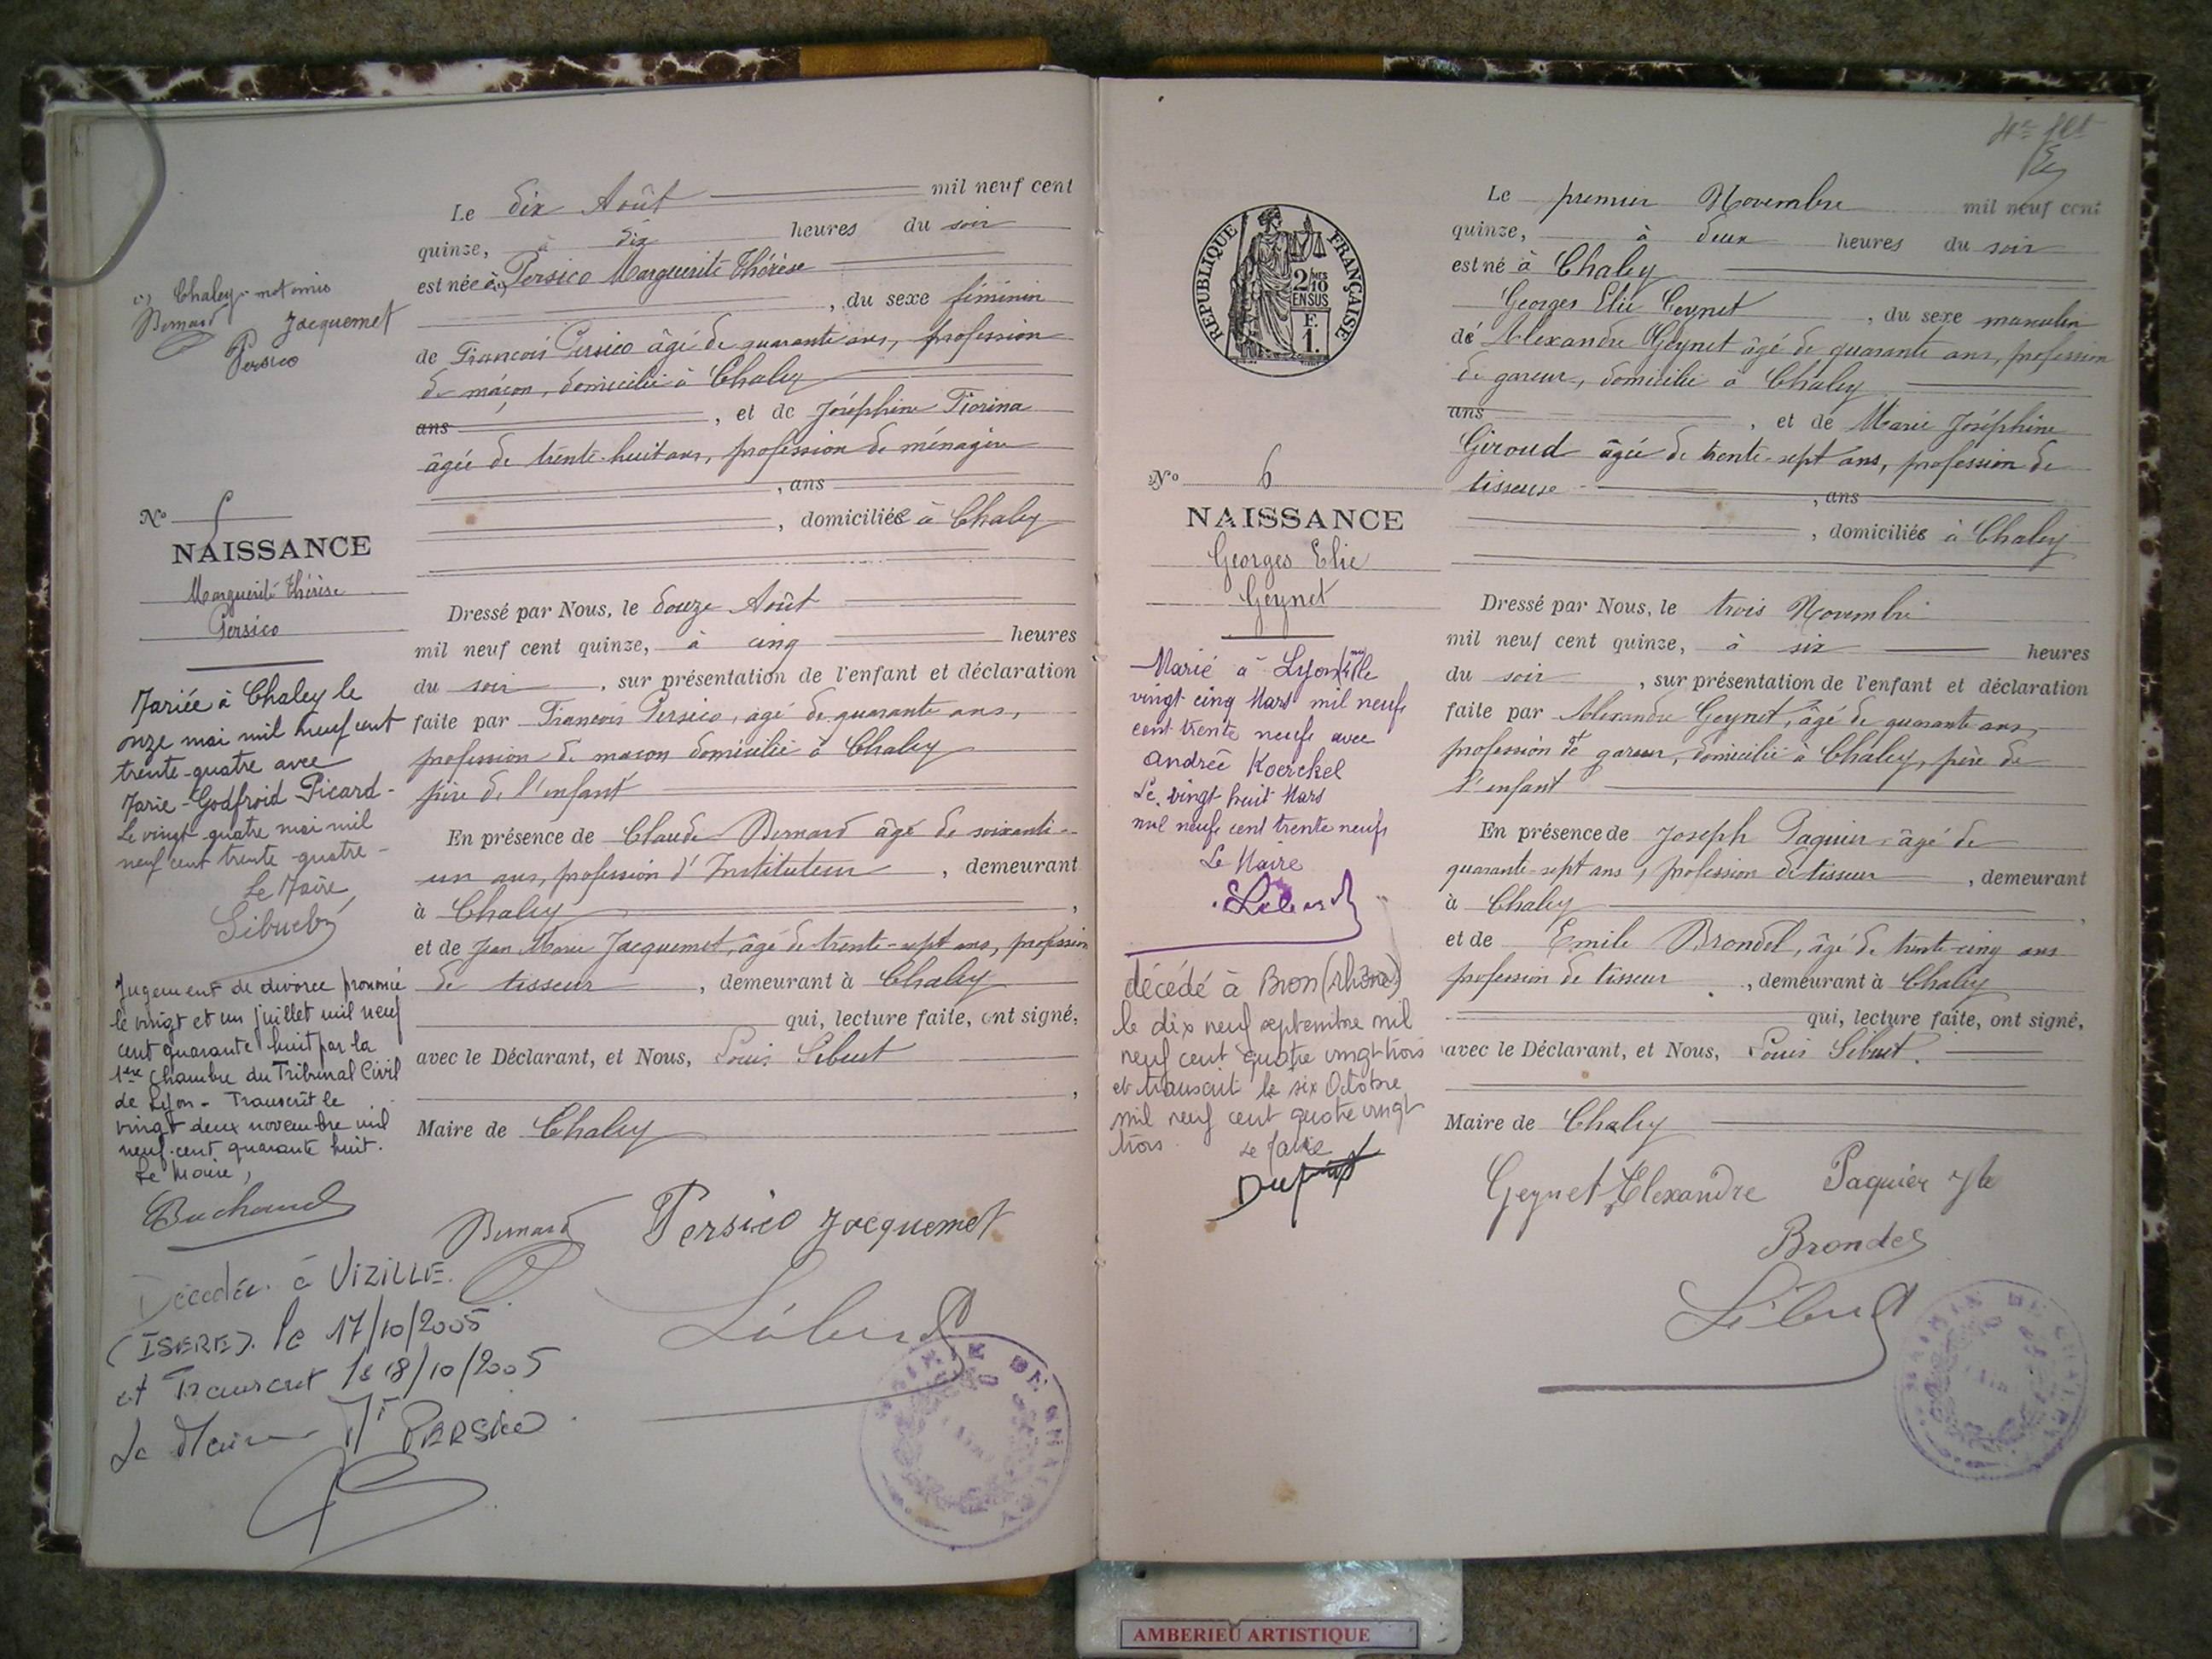 (1) Chaley mot omis
Bernard Jacquemet
Persico
Nº 5
NAISSANCE
Marguerite Thérèse
Persico
Mariée à Chaley le
onze mai mil neuf cent
trente-quatre avec
Marie-Godfroid Picard-
Le vingt-quatre mai mil
neuf cent trente-quatre-
Le Maire,
Jugement de divorce prononcé
le vingt et un juillet mil neuf
cent quarante huit par la
1ère Chambre du Tribunal Civil
de Lyon - Transcrit le
vingt deux novembre mil
neuf-cent quarante huit.
Le Maire,
Décédée à VIZILLE.
(ISERE). le 17/10/2005
et Transcrit le 18/10/2005
Le Maire PERSICO
Le dix Août mil neuf cent
quinze, à dix heures du soir
est née à (1) Persico Marguerite Thérèse
, du sexe féminin
de François Persico âgé de quarante ans, profession
de maçon, domicilié à Chaley
ans , et de Joséphine Fiorina
âgée de trente-huit ans, profession de ménagère
, ans
, domiciliée à Chaley
Dressé par Nous, le douze Août
mil neuf cent quinze, à cinq heures
du soir , sur présentation de l'enfant et déclaration
faite par François Persico, âgé de quarante ans,
profession de maçon domicilié à Chaley
père de l'enfant
En présence de Claude Bernard âgé de soixante-
un ans, profession d'Instituteur , demeurant
à Chaley ,
et de Jean Marie Jacquemet, âgé de trente-sept ans, profession
de tisseur , demeurant à Chaley
qui, lecture faite, ont signé,
avec le Déclarant, et Nous, Louis Sibuet
,
Maire de Chaley
Bernard Persico Jacquemet
Sibuet
MAIRIE DE CHALEY
REPUBLIQUE FRANÇAISE
2/10 MES
EN SUS
F.
1.
Nº 6
NAISSANCE
Georges Elie
Geynet
Marié à Lyon le
vingt cinq Mars mil neuf
cent trente neuf avec
Andrée Koerckel
Le vingt huit Mars
mil neuf cent trente neuf
Le Maire
décédé à Bron (Rhône)
le dix neuf septembre mil
neuf cent quatre vingt trois
et transcrit le six Octobre
mil neuf cent quatre vingt
trois. Le Maire
Le premier Novembre mil neuf cent
quinze, à deux heures du soir
est né à Chaley
Georges Elie Geynet , du sexe masculin
de Alexandre Geynet âgé de quarante ans, profession
de gareur, domicilié à Chaley
ans , et de Marie Joséphine
Giroud âgée de trente-sept ans, profession de
tisseuse , ans
, domiciliés à Chaley
Dressé par Nous, le trois Novembre
mil neuf cent quinze, à six heures
du soir , sur présentation de l'enfant et déclaration
faite par Alexandre Geynet, âgé de quarante ans,
profession de gareur, domicilié à Chaley, père de
l'enfant
En présence de Joseph Paquier âgé de
quarante-sept ans, profession de tisseur , demeurant
à Chaley ,
et de Emile Brondel, âgé de trente-cinq ans
profession de tisseur , demeurant à Chaley
qui, lecture faite, ont signé,
avec le Déclarant, et Nous, Louis Sibuet.
Maire de Chaley
Geynet Alexandre Paquier
Brondel
Sibuet
MAIRIE DE CHALEY
AMBERIEU ARTISTIQUE